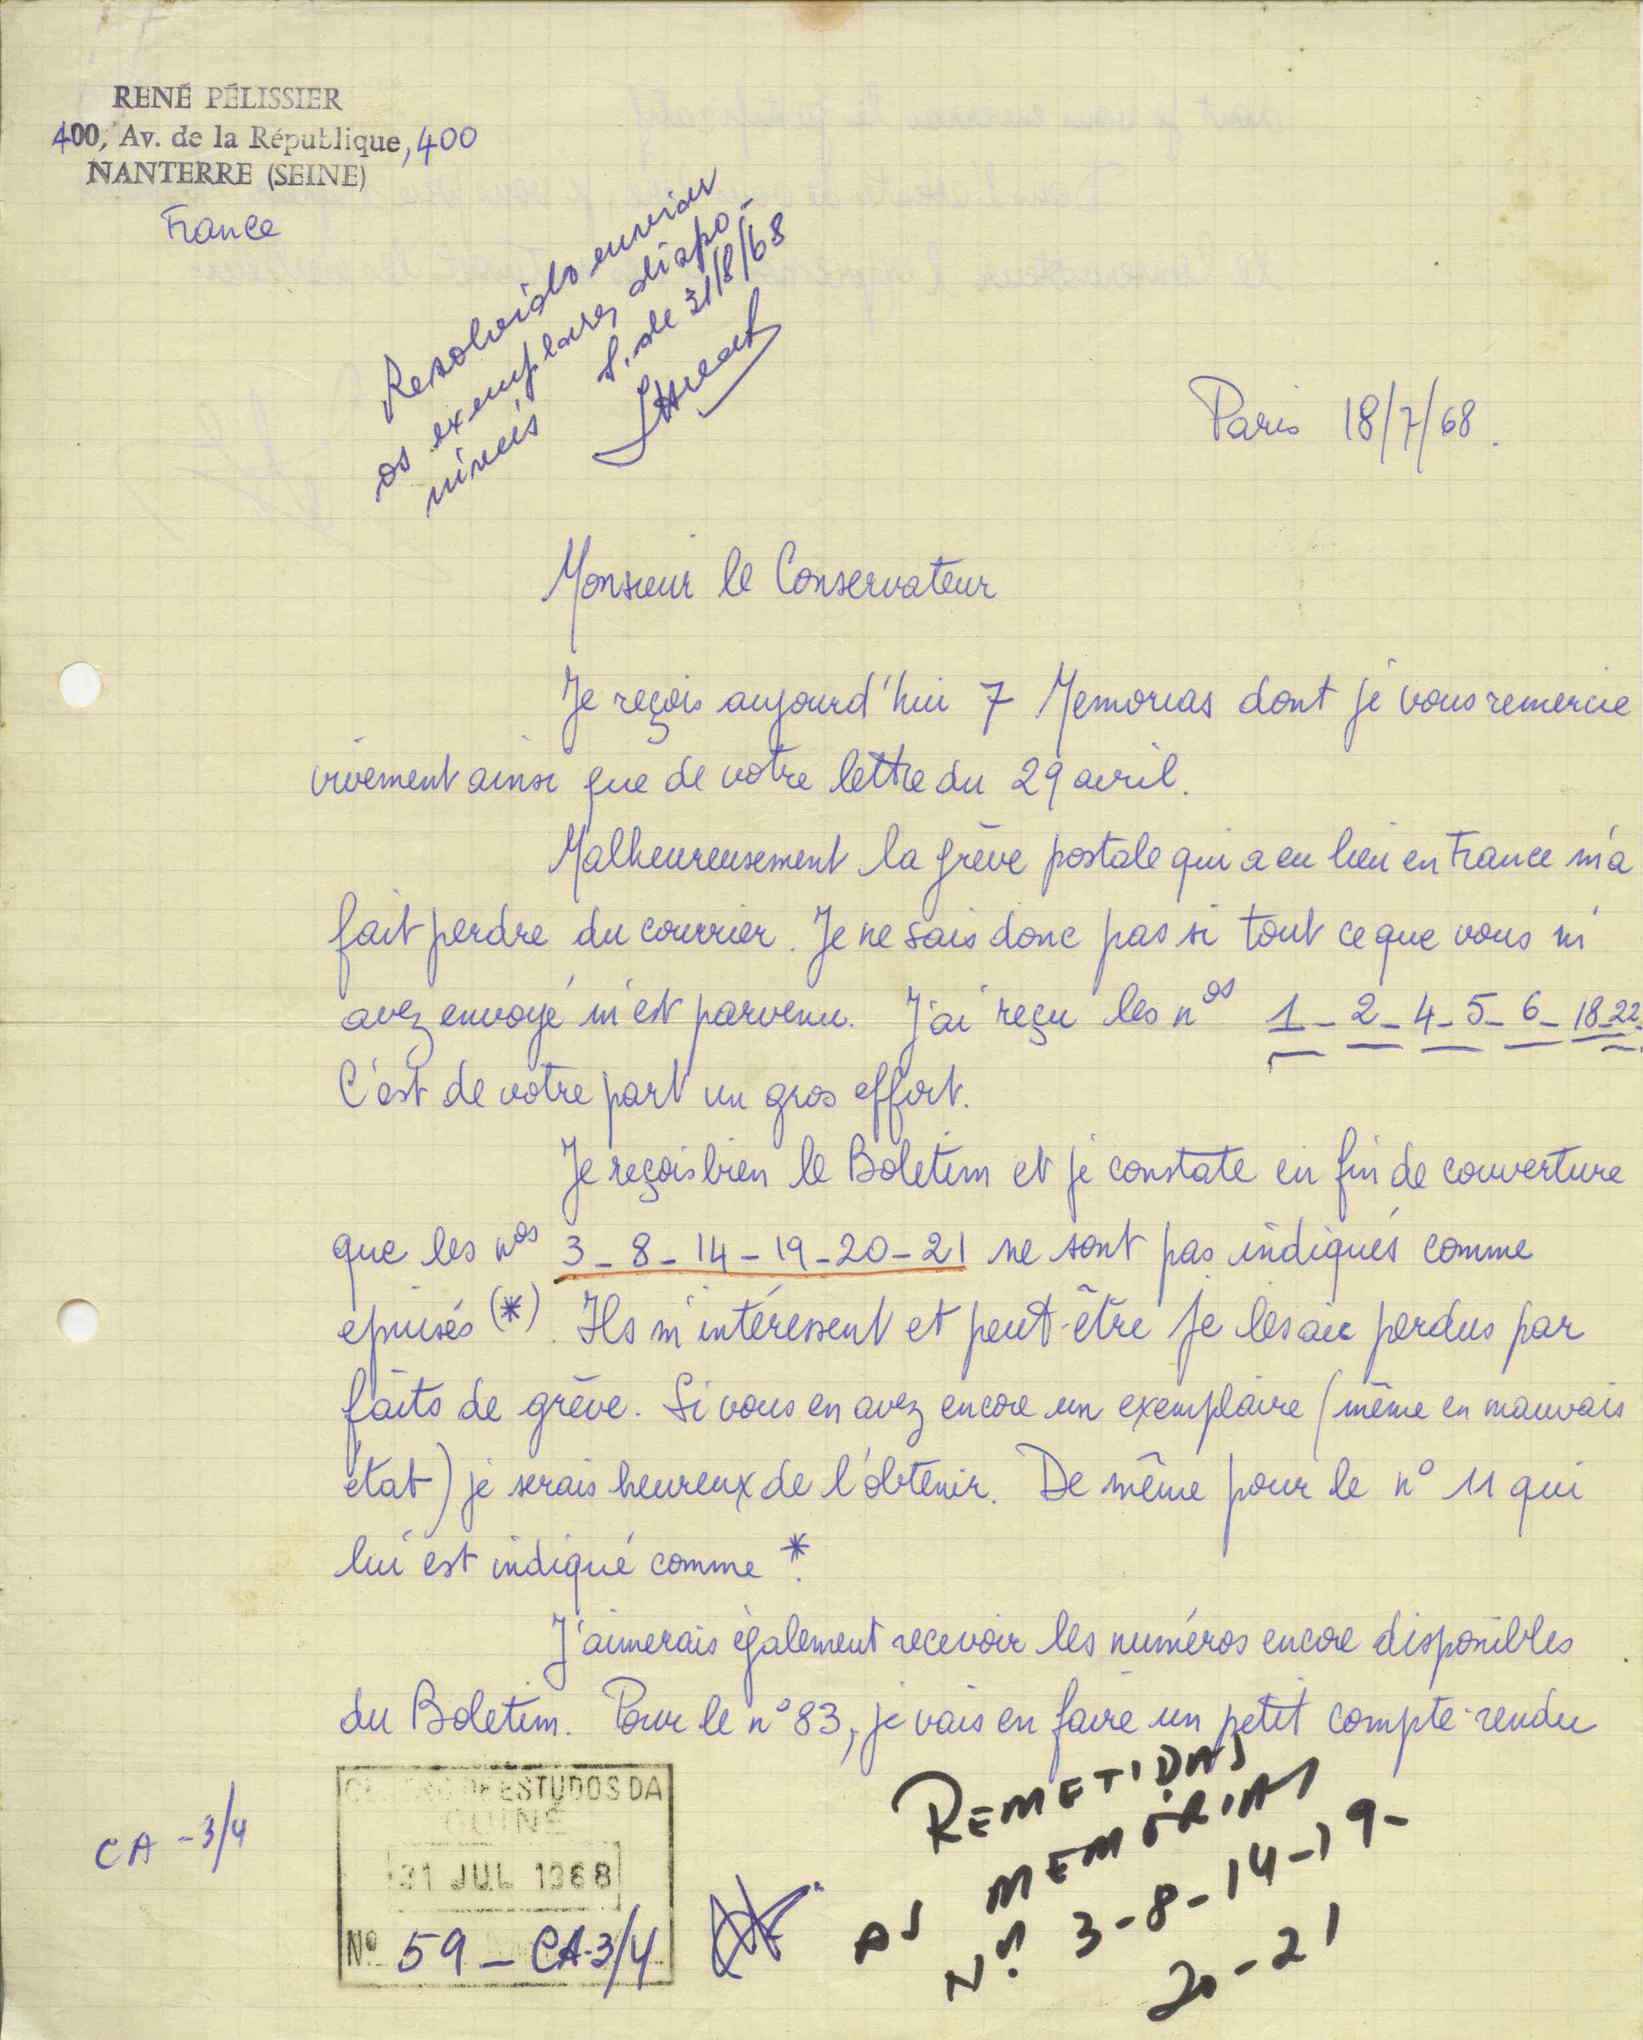 RENÉ PÉLISSIER
400, Av. de la République, 400
NANTERRE (SEINE)
France
Resolvido enviar
os exemplares dispo-
níveis S. de 31/8/68
Paris 18/7/68.
Monsieur le Conservateur
Je reçois aujourd'hui 7 Memorias dont je vous remercie
vivement ainsi que de votre lettre du 29 avril.
Malheureusement la grève postale qui a eu lieu en France m'a
fait perdre du courrier. Je ne sais donc pas si tout ce que vous m'
avez envoyé m'est parvenu. J'ai reçu les nos 1 - 2 - 4 - 5 - 6 - 18 - 22.
C'est de votre part un gros effort.
Je reçois bien le Boletim et je constate en fin de couverture
que les nos 3 - 8 - 14 - 19 - 20 - 21 ne sont pas indiqués comme
epuisés (*). Ils m'intéressent et peut-être je les aie perdus par
faits de grève. Si vous en avez encore un exemplaire (même en mauvais
état) je serais heureux de l'obtenir. De même pour le n° 11 qui
lui est indiqué comme *.
J'aimerais également recevoir les numéros encore disponibles
du Boletim. Pour le n° 83, je vais en faire un petit compte-rendu
CA - 3/4
CENTRO DE ESTUDOS DA
GUINÉ
31 JUL 1968
Nº 59 - CA-3/4
REMETIDAS
AS MEMÓRIAS
Nºs 3 - 8 - 14 - 19 -
20 - 21